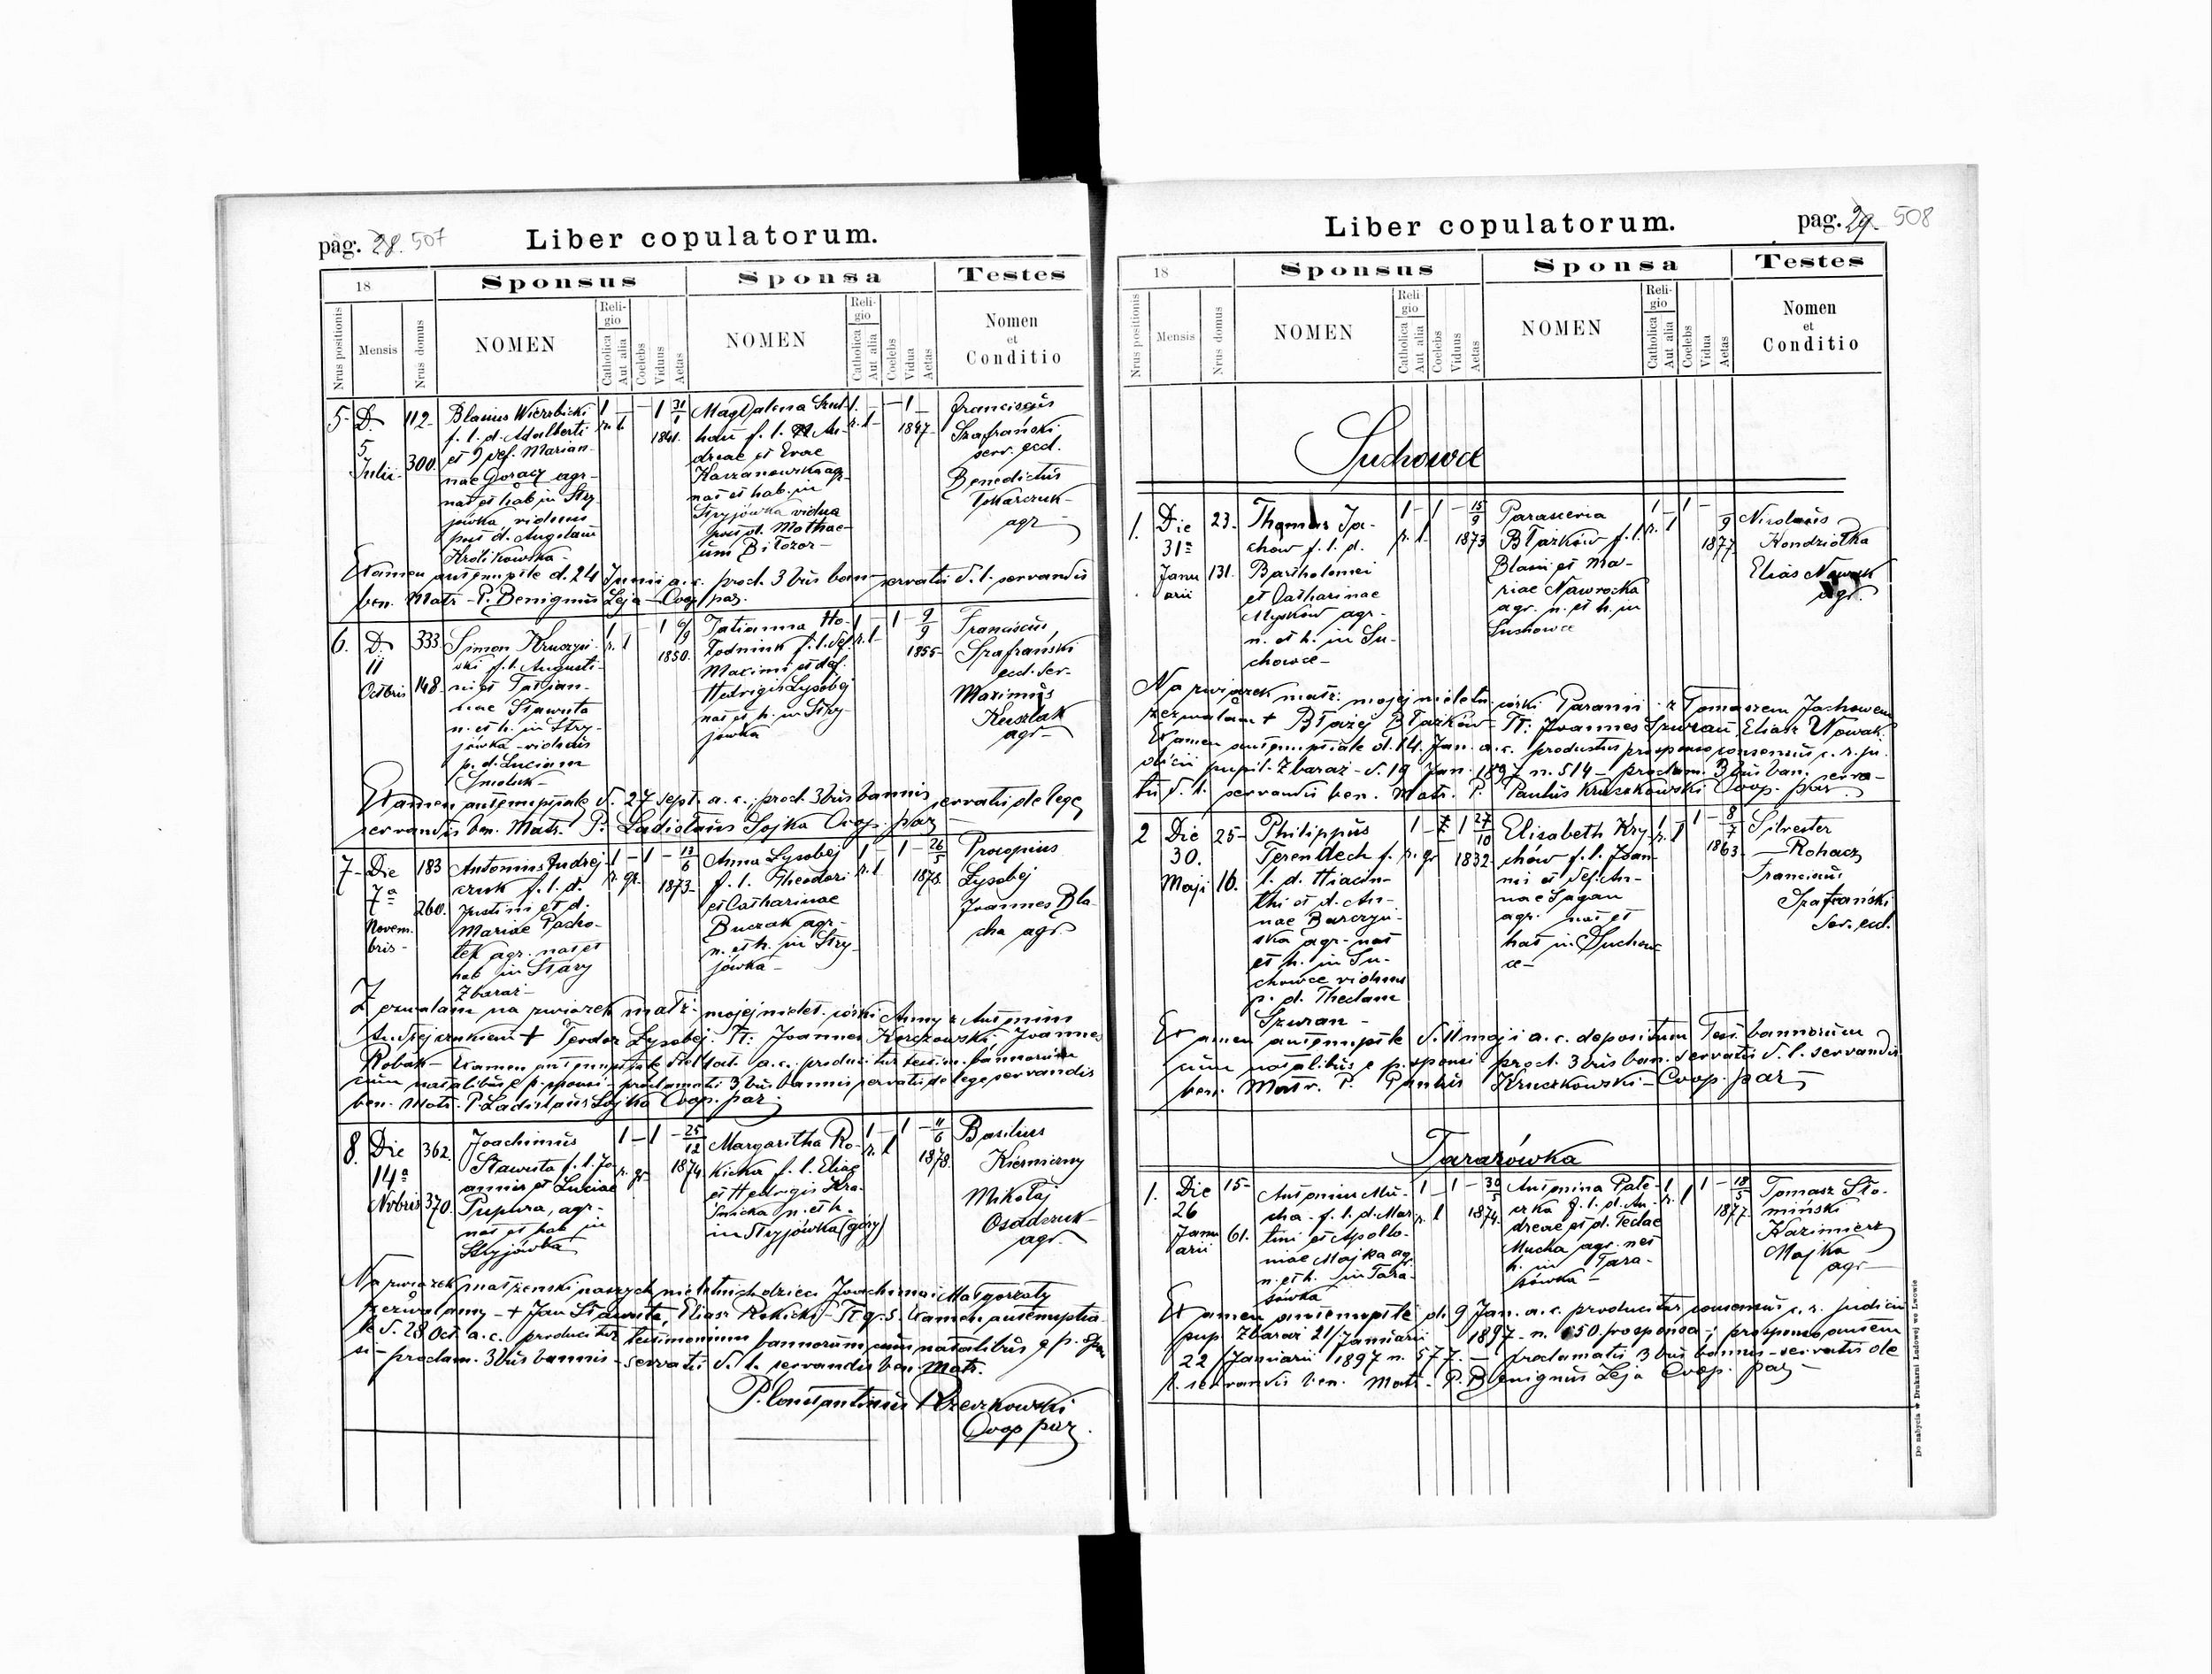 pag. 28. 507
Liber copulatorum.
18
Sponsus
Sponsa
Testes
Nrus positionis
Mensis
Nrus domus
NOMEN
Religio
Catholica
Aut alia
Coelebs
Viduus
Aetas
NOMEN
Religio
Catholica
Aut alia
Coelebs
Vidua
Aetas
Nomen
et
Conditio
5. D. 5 Julii 112. 300.
Blasius Wierzbicki
f. l. d. Adalberti
et def. Marian-
nae Goracy agr-
nat et hab. in Stry
jówka, viduus
post d. Angelam
Królikowska
1 r. l. 1 31/1 1841.
Magdalena
f. l. An-
dreae et Evae
Kaszanowska agr-
nat et hab. in
Stryjówka vidua
post d. Mathae-
um Bilozor
1 r. l. 1 1847
Franciscus
Szafrański
serv. eccl.
Benedictus
Tokarczuk
agr
Examen antenuptle d. 24 Junii a. c. procl. 3bus ban- servatis d. l. servandis
ben. Matr - P. Benignus Leja - Coop. par.
6. D. 11 Octbris 333. 148.
Simon Kruszyń
ski f. l. Augusti-
ni et Tatian-
nae Sławuta
n. et h. in Stry-
jówka - viduus
p. d. Luciam
Smoluk
1 r. l 1 1850.
Tatianna Ho-
łodniuk f. l. def.
Maximi et def.
Hedvigis Łysobej
nat et h. in Stry-
jówka
1 r. l 1 2/9 1855
Franciscus
Szafrański
eccl. ser-
Maximus
Kuszlak
agr
Examen antenuptiale d. 27 Sept. a. c., procl. 3bus bannis servatis de lege
servandis ben. Matr. P. Ladislaus Sojka Coop. par
7. Die 7a Novembris 183 260.
Antonius Andrej
czuk f. l. d.
Justini et d.
Mariae Pacho-
lek agr. nat et
hab in Stary
Zbaraż
1 r. gr. 1 13/6 1873
Anna Łysobej
f. l. Theodori
et Catharinae
Buczak agr-
n. et h. in Stry-
jówka
1 r. l 1 26/5 1878.
Procopius
Łysobej
Joannes Bla-
cha agr.
Zezwalam na związek małż. mojej nielet. córki Anny z Antonim
Andrejczukiem + Teodor Łysobej. Tt: Joannes Korczowski, Joannes
Robak - Examen antenuptiale a. c. producitur testim. bannorum
cum natalibus e p. sponsi - proclamatis 3bus bannis servatis de lege servandis
ben. Matr. P. Ladislaus Sojka Coop. par.
8. Die 14a Nvbris 362. 370.
Joachimus
Sławuta f. l. Jo-
annis et Luciae
Pupura, agr-
nat et hab in
Stryjówka
1 r. gr. 1 25/12 1874.
Margaritha Ro-
kicka f. l. Eliae
et Hedvigis Kra-
śnicka n. et h.
in Stryjówka (góry)
1 r. l 1 11/6 1878.
Basilius
Kierniczny
Mikołaj
Osadczuk
agr.
Na związek małżeński naszych nieletnich dzieci Joachima i Małgorzaty
zezwalamy - + Jan Sławuta, Eliasz Rokicki - Tt q. s. Examen antenuptia-
le d. 28 Oct. a. c. producitur testimonium bannorum cum natalibus e p. spon
si - proclam. 3bus bannis - servatis d. l. servandis ben. Matr.
P. Constantinus Rzeczkowski
Coop par.
Liber copulatorum.
pag. 29. 508
18
Sponsus
Sponsa
Testes
Nrus positionis
Mensis
Nrus domus
NOMEN
Religio
Catholica
Aut alia
Coelebs
Viduus
Aetas
NOMEN
Religio
Catholica
Aut alia
Coelebs
Vidua
Aetas
Nomen
et
Conditio
Suchowce
1. Die 31a Januarii 23. 131.
Thomas Ja-
chow f. l. d.
Bartholomei
et Catharinae
Myśków agr.
n. et h. in Su-
chowce
1 r. l. 1 15/9 1873
Parascevia
Błażków f. l.
Blasii et Ma-
riae Nawrocka
agr. n. et h. in
Suchowce
1 r. l 1 1877
Nicolaus
Kondziołka
Elias Nowak
agr.
Na związek małż. mojej nieletn. córki Parani z Tomaszem Jachowem
zezwalam + Błażej Błażków - Tt. Joannes Szwran, Eliasz Nowak.
Examen antenuptiale d. 14. Jan. a. c. productus pro sponso consensus c. r. ju
dicii pupil. Zbaraż - d. 19 Jan. 1897 n. 514 - proclam. 3bus ban. serva-
tis d. l. servandis ben. Matr. P. Paulus Kruczkowski Coop. par
2 Die 30. Maji 25 16.
Philippus
Terendech f.
l. d. Hiacin-
thi et d. An-
nae Barczyń-
ska agr. nat
et h. in Su-
chowce viduus
p. d. Theclam
Szwran
1 r. gr 1 27/10 1832.
Elisabeth Kry-
chów f. l. Joan-
nis et def. An-
nae Sagan
agr. nat et
hat in Suchow
ce
1 r. l 1 8/7 1863
Silvester
Rohacz
Franciscus
Szafrański
Ser. eccl.
Examen antenuptle d. 11 maji a. c. depositum Test. bannorum
cum natalibus e p. sponsi procl. 3bus ban. servatis d. l. servandis
ben. Matr. P. Paulus Kruczkowski - Coop. par
Tarazówka
1. Die 26 Januarii 15 61.
Antonius Mu-
cha f. l. d. Mar-
tini et Apollo-
niae Majka agr
n. et h. in Tara-
zówka
1 r. l 1 30/5 1874.
Antonina Pate-
rka f. l. d. An-
dreae et d. Teclae
Mucha agr. nat
h. in Tara-
zówka
1 r. l 1 18/5 1877.
Tomasz Sło-
miński
Kazimierz
Majka
agr
Examen antenuptle d. 9 Jan. a. c. producitur consensus c. r. judicii
pup. Zbaraż 21/Januarii 1897 - n. 550. pro sponsa; pro sponso autem
22/Januarii 1897 n. 577. - proclamatis 3bus bannis - servatis de
l. servandis ben. Matr. P. Benignus Leja Coop. par
Do nabycia w Drukarni Ludowej we Lwowie